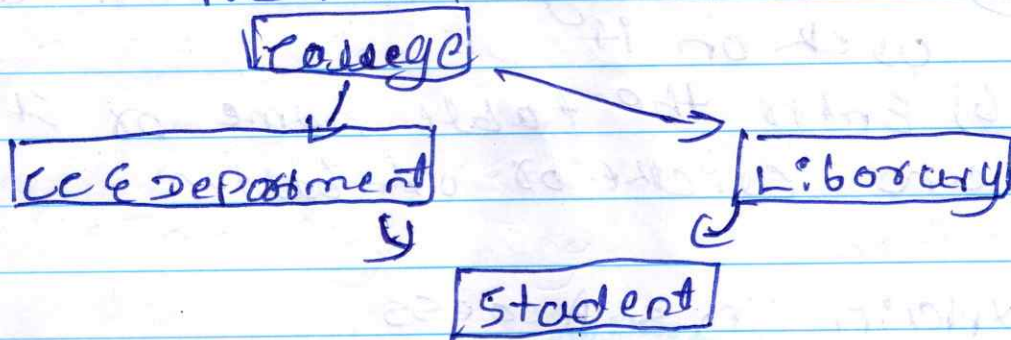 College
CCE Department
Liborary
Student